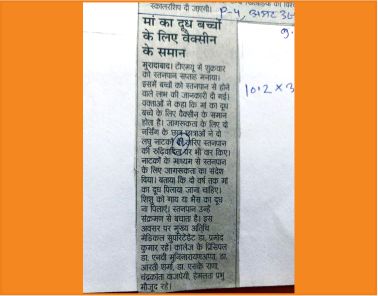 स्कालरशिप दी जाएगी।
P-4, अमर उ
मां का दूध बच्चों
के लिए वैक्सीन
के समान
मुरादाबाद। टीएमयू में शुक्रवार
को स्तनपान सप्ताह मनाया।
इसमें बच्चों को स्तनपान से होने
वाले लाभ की जानकारी दी गई।
वक्ताओं ने कहा कि मां का दूध
बच्चे के लिए वैक्सीन के समान
होता है। जागरूकता के लिए दो
नर्सिंग के छात्र छात्राओं ने दो
लघु नाटकों के जरिए स्तनपान
की रूढ़िवादिता पर भी वार किए।
नाटकों के माध्यम से स्तनपान
के लिए जागरूकता का संदेश
दिया। बताया कि दो वर्ष तक मां
का दूध पिलाया जाना चाहिए।
शिशु को गाय या भैंस का दूध
ना पिलाएं। स्तनपान उन्हें
संक्रमण से बचाता है। इस
अवसर पर मुख्य अतिथि
मेडिकल सुपरिटेंडेंट डा. प्रमोद
कुमार रहे। कालेज के प्रिंसिपल
डा. एनवी मुनिनारायणअप्पा, डा.
आरती शर्मा, डा. एसके राणा,
चंद्रकांता वाजपेयी, हेमलता प्रभु
मौजूद रहे।
9.
10.2 x 3